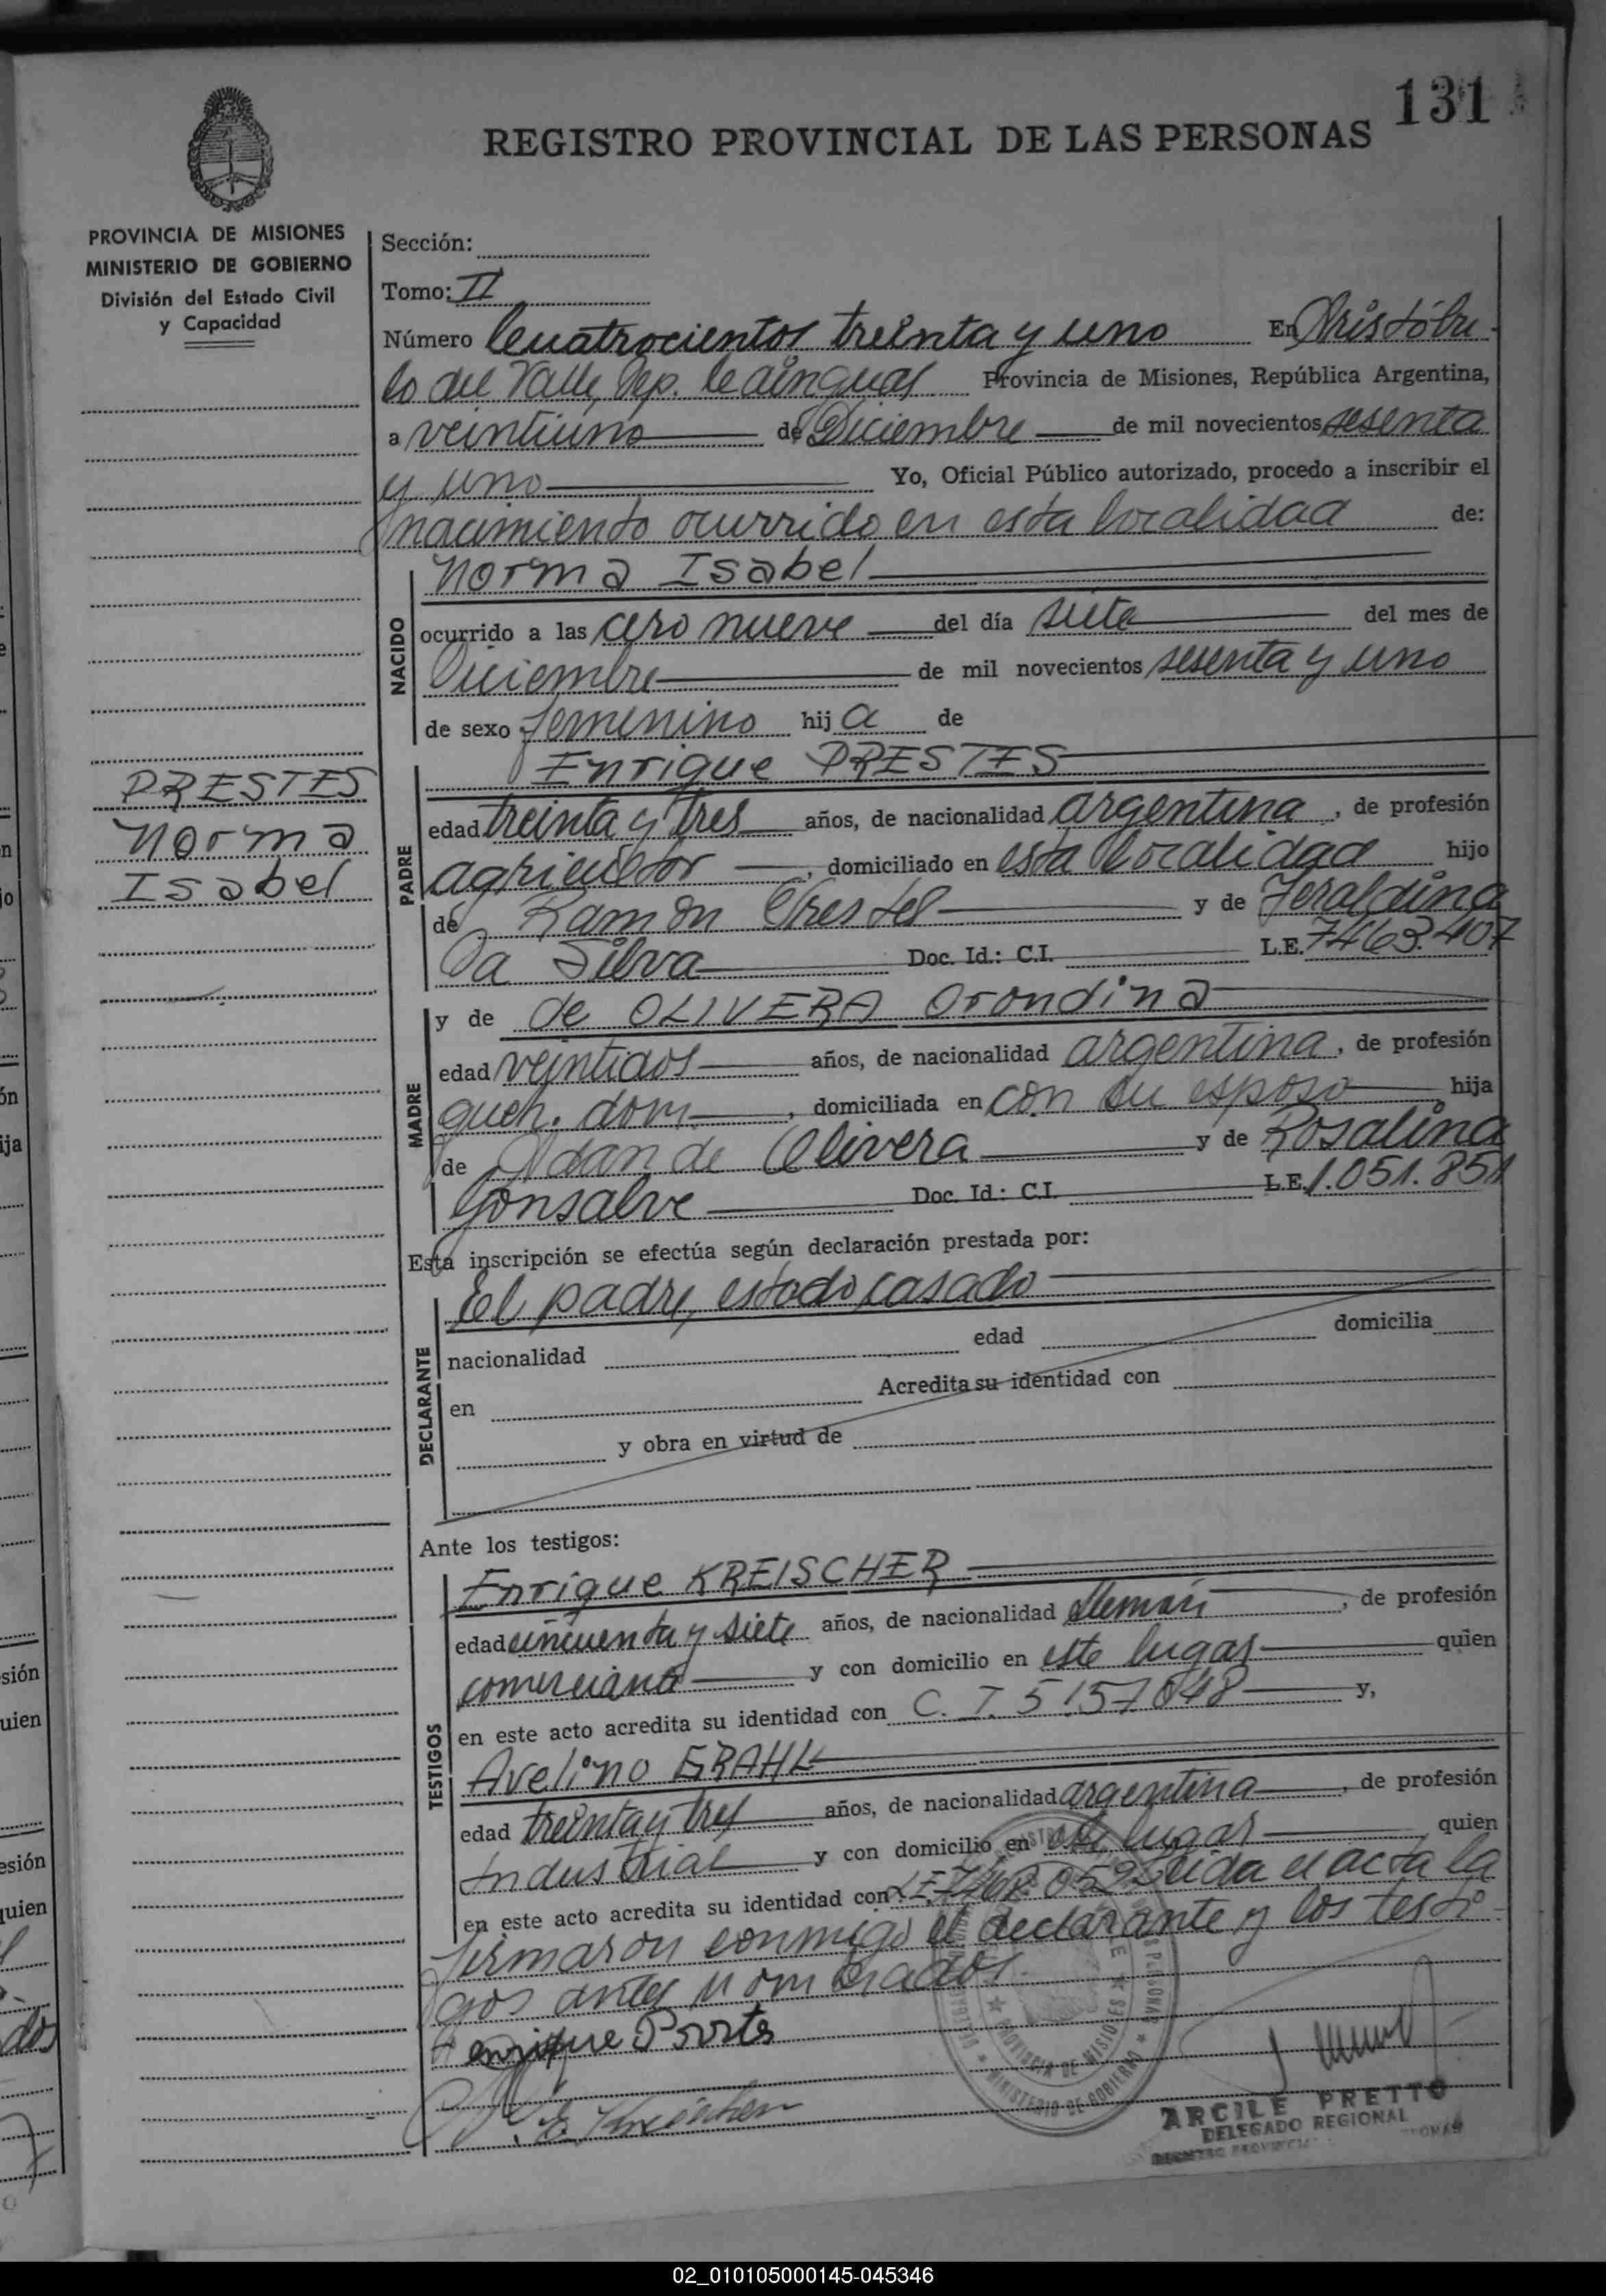 131
REGISTRO PROVINCIAL DE LAS PERSONAS
PROVINCIA DE MISIONES
MINISTERIO DE GOBIERNO
División del Estado Civil
y Capacidad
Sección:
Tomo: II
Número Cuatrocientos treinta y uno En Cristóbu-
lo del Valle, Dep. Cainguas Provincia de Misiones, República Argentina,
a veintiuno de Diciembre de mil novecientos sesenta
y uno Yo, Oficial Público autorizado, procedo a inscribir el
nacimiento ocurrido en esta localidad de:
NACIDO
Norma Isabel
ocurrido a las cero nueve del día siete del mes de
Diciembre de mil novecientos sesenta y uno
de sexo femenino hija de
PRESTES
Norma
Isabel
PADRE
Enrique PRESTES
edad treinta y tres años, de nacionalidad argentina, de profesión
agricultor, domiciliado en esta localidad hijo
de Ramón Prestes y de Jeraldina
Da Silva Doc. Id.: C.I. L.E. 7463.407
MADRE
y de de OLIVERA Orondina
edad veintidos años, de nacionalidad argentina, de profesión
queh. dom., domiciliada en con su esposo hija
de Adan de Olivera y de Rosalina
Gonsalve Doc. Id.: C.I. L.E. 1.051.851
Esta inscripción se efectúa según declaración prestada por:
DECLARANTE
El padre, estado casado
nacionalidad edad domicilia
en Acredita su identidad con
y obra en virtud de
Ante los testigos:
TESTIGOS
Enrique KREISCHER
edad cincuenta y siete años, de nacionalidad Alemán, de profesión
comerciante y con domicilio en este lugar quien
en este acto acredita su identidad con C. I. 5157048 y,
Avelino GRAHL
edad treinta y tres años, de nacionalidad argentina, de profesión
Industrial y con domicilio en este lugar quien
en este acto acredita su identidad con Leida el acta la
firmaron conmigo el declarante y los testi-
gos antes nombrados.
enrique
PROVINCIA DE MISIONES
MINISTERIO DE GOBIERNO
ARCILE PRETTO
DELEGADO REGIONAL
02_010105000145-045346